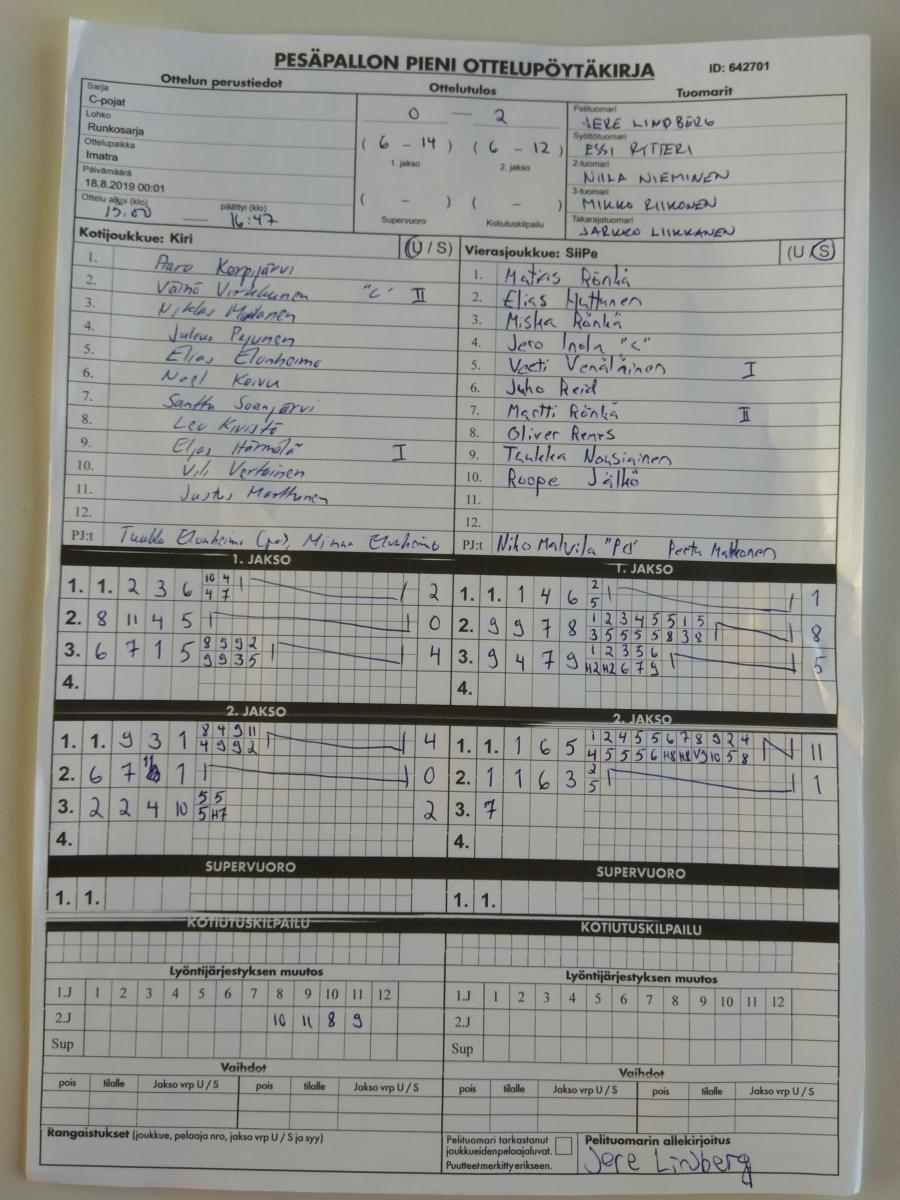 PESÄPALLON PIENI OTTELUPÖYTÄKIRJA ID: 642701
Ottelun perustiedot Ottelutulos Tuomarit
Sarja
C-pojat
Lohko
Runkosarja
Ottelupaikka
Imatra
Päivämäärä
18.8.2019 00:01
Ottelu alkoi (klo) päättyi (klo)
15.00 — 16:47
0 — 2
( 6 - 14 ) ( 6 - 12 )
1. jakso 2. jakso
( - ) ( - )
Supervuoro Kotiutuskilpailu
Pelituomari
JERE LINDBERG
Syöttötuomari
ESSI RYTTERI
2-tuomari
NIILA NIEMINEN
3-tuomari
MIKKO RIIKONEN
Takarajatuomari
JARKKO LIIKKANEN
Kotijoukkue: Kiri (U / S)
1. Aaro Korpijärvi
2. Väinö Virkkunen "C" II
3. Niklas
4. Julius Pejunen
5. Elias Elonheimo
6. Noel Koivu
7. Santtu Suonjärvi
8. Leo Kivistö
9. Elias Härmälä I
10. Vili Vertainen
11. Justus Marttunen
12.
PJ:t Tuukka Elonheimo (pj), Minna Elonheimo
Vierasjoukkue: SiiPe (U / S)
1. Matias Rönkä
2. Elias Huttunen
3. Miska Rönkä
4. Jero Inola "C"
5. Veeti Venäläinen I
6. Juho Reid
7. Martti Rönkä II
8. Oliver Renes
9. Tuukka Nousiainen
10. Roope Jälkö
11.
12.
PJ:t Niko Matvila "PJ" Peetu Makkonen
1. JAKSO
1. 1. 2 3 6 10 4 2
4 7
2. 8 11 4 5 0
3. 6 7 1 5 8 9 9 2 4
9 9 3 5
4.
1. JAKSO
1. 1. 1 4 6 2 1
5
2. 9 9 7 8 1 2 3 4 5 5 1 5 8
3 5 5 5 5 8 3 8
3. 9 4 7 9 1 2 3 5 6 5
H2 H2 6 7 9
4.
2. JAKSO
1. 1. 9 3 1 8 4 9 11 4
4 9 9 2
2. 6 7 11 1 0
3. 2 2 4 10 5 5 2
5 H7
4.
2. JAKSO
1. 1. 1 6 5 1 2 4 5 5 6 7 8 9 2 4 11
4 5 5 5 6 H8 H8 V9 10 5 8
2. 1 1 6 3 2 1
5
3. 7
4.
SUPERVUORO
1. 1.
SUPERVUORO
1. 1.
KOTIUTUSKILPAILU
KOTIUTUSKILPAILU
Lyöntijärjestyksen muutos
1.J 1 2 3 4 5 6 7 8 9 10 11 12
2.J 10 11 8 9
Sup
Lyöntijärjestyksen muutos
1.J 1 2 3 4 5 6 7 8 9 10 11 12
2.J
Sup
Vaihdot
pois tilalle Jakso vrp U / S pois tilalle Jakso vrp U / S
Vaihdot
pois tilalle Jakso vrp U / S pois tilalle Jakso vrp U / S
Rangaistukset (joukkue, pelaaja nro, jakso vrp U / S ja syy)
Pelituomari tarkastanut
joukkueidenpelaajaluvat.
Puutteet merkitty erikseen.
Pelituomarin allekirjoitus
Jere Lindberg